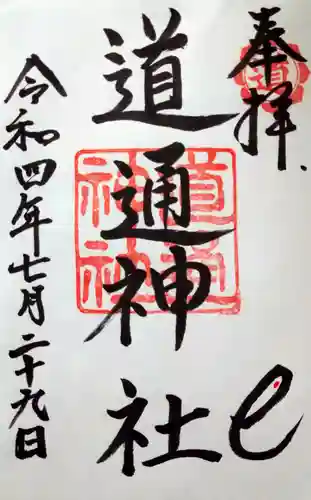 奉拝
道通神社
令和四年七月二十九日
道通
神社